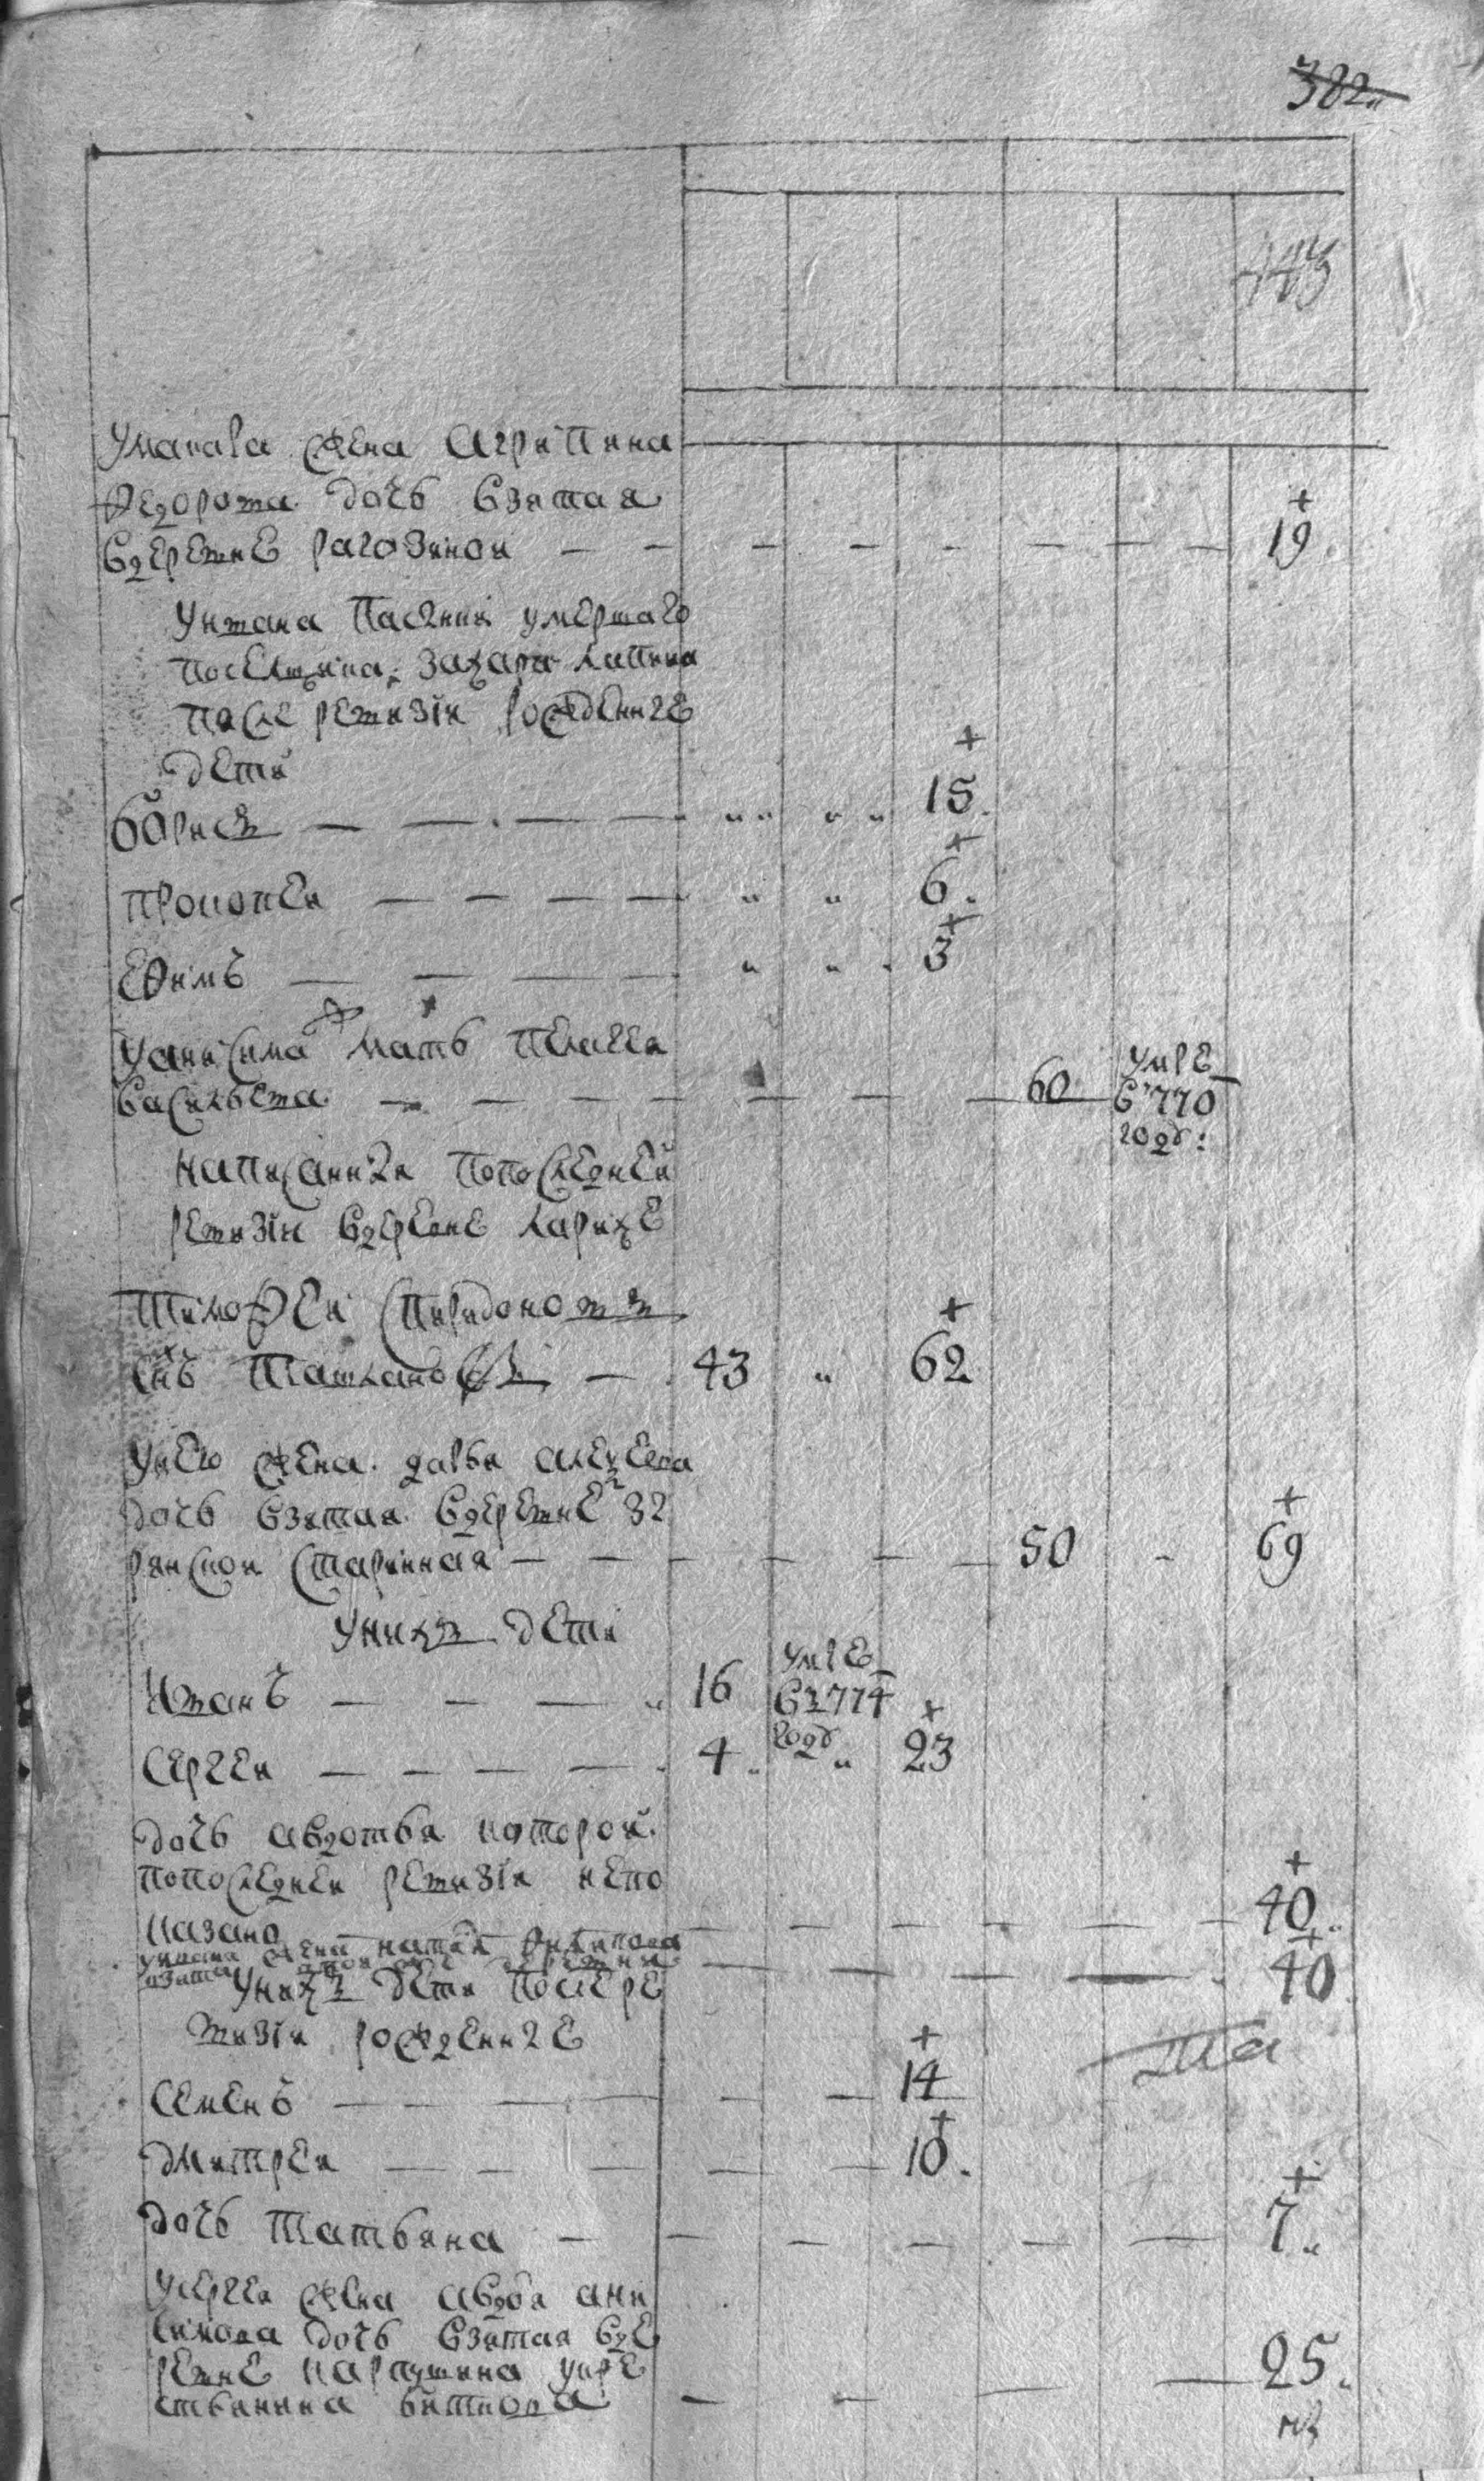 382
443
Умакара жена Агрипина
Федорова дочь взятая
вдеревне рагозиной — — — — — — — — 19
Уивана пасынки умершаго
посельщика Захара Липина
после ревизiи рожденные
дети
Борисъ — — — — " " 15
Прокопей — — — — " " 6
Ефимъ — — — " " 3
Уанисима мать Пелагея
Васильева — — — — — — — 60 умре
в 770
годе
Написанныя попоследней
ревизiи вдеревне
Тимофей Спиридоновъ
снъ — 43 " 62
Унего жена Дарья Алексеева
дочь взятая вдеревне Зы
рянской старинная — — — — — 50 - 69
Унихъ дети
Иванъ — — — 16 умре
въ 774
годе
Сергей — — — — 4 " 23
дочь Авдотья которой
попоследней ревизiи непо
казано — — — — — — 40
жена — — — — 40
Унихъ дети после ре
визiи рожденные
Семенъ — — — — — 14
Дмитрей — — — — — 10
дочь Татьяна — — — — — — 7
Усергея жена Авдотья Ани
симова дочь взятая вде
ревне укре
стьянина — — — — 25